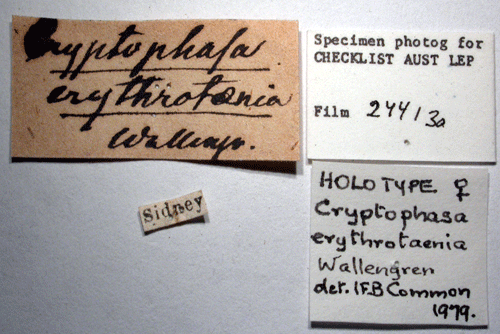 Cryptophasa
erythrotænia
Wallengr.
Specimen photog for
CHECKLIST AUST LEP
Film 2441 3a
Sidney
HOLOTYPE ♀
Cryptophasa
erythrotaenia
Wallengren
det. I.F.B Common
1979.